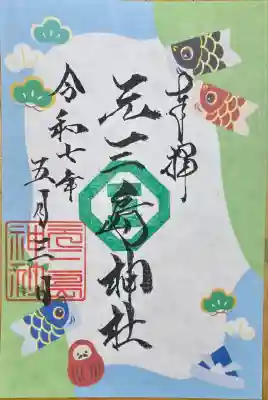 奉拝
元三島神社
令和七年
五月三日
元三島
神社